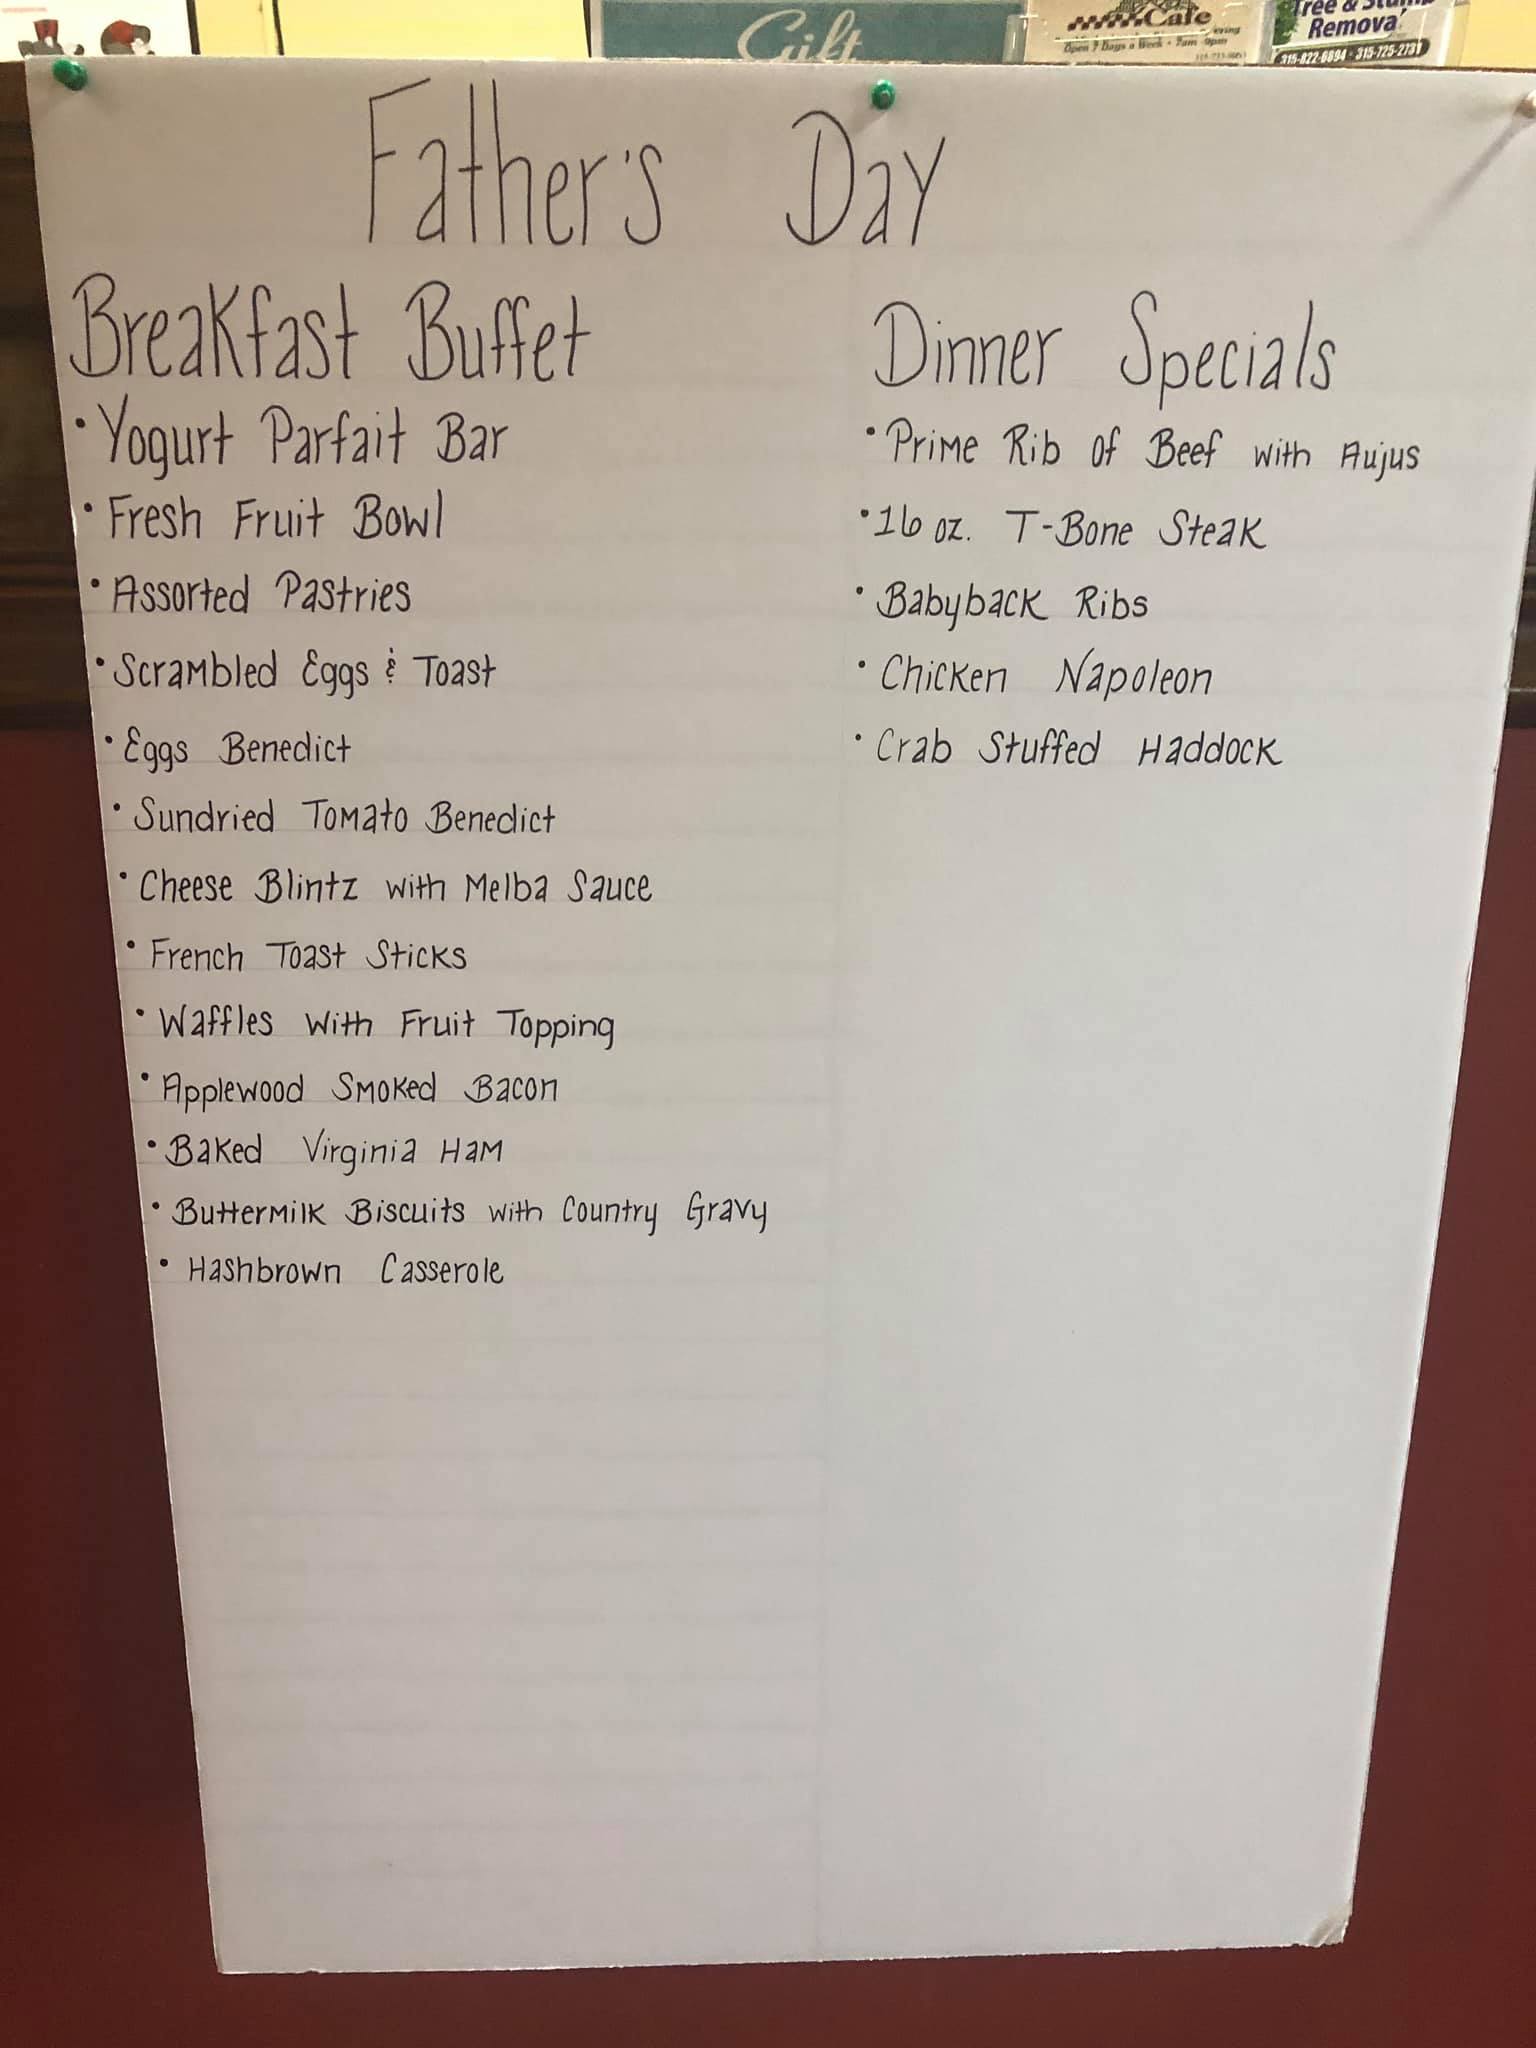 Gift
Cafe
Open 7 Days a Week • 7am 9pm
Tree & Stump
Removal
315-822-6894 • 315-725-2731
Father's Day
Breakfast Buffet
• Yogurt Parfait Bar
• Fresh Fruit Bowl
• Assorted Pastries
• Scrambled Eggs & Toast
• Eggs Benedict
• Sundried Tomato Benedict
• Cheese Blintz with Melba Sauce
• French Toast Sticks
• Waffles with Fruit Topping
• Applewood Smoked Bacon
• Baked Virginia Ham
• Buttermilk Biscuits with Country Gravy
• Hashbrown Casserole
Dinner Specials
• Prime Rib of Beef with Aujus
• 16 oz. T-Bone Steak
• Babyback Ribs
• Chicken Napoleon
• Crab Stuffed Haddock